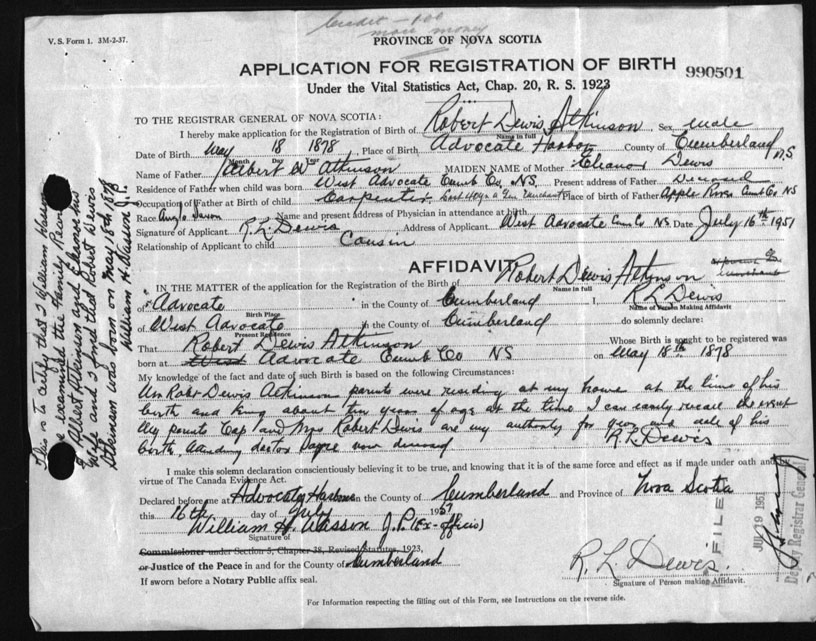 more money
V. S. Form 1. 3M-2-37.
PROVINCE OF NOVA SCOTIA
APPLICATION FOR REGISTRATION OF BIRTH
990501
Under the Vital Statistics Act, Chap. 20, R. S. 1923
TO THE REGISTRAR GENERAL OF NOVA SCOTIA:
I hereby make application for the Registration of Birth of Robert Dewis Atkinson Sex male
Name in full
Date of Birth May 18 1878, Place of Birth Advocate Harbor County of Cumberland N.S
Month Day Year
Name of Father Albert W Atkinson MAIDEN NAME of Mother Eleanor Dewis
Residence of Father when child was born West Advocate Cumb Co, N.S. Present address of Father Deceased
Occupation of Father at Birth of child Carpenter Place of Birth of Father Apple River Cumb Co NS
Race Anglo Saxon Name and present Address of Physician in attendance at birth
Signature of Applicant R. L. Dewis Address of Applicant West Advocate Cum Co NS Date July 16th 1951
Relationship of Applicant to child Cousin
AFFIDAVIT
IN THE MATTER of the application for the Registration of the Birth of Robert Dewis Atkinson
Name in full
of Advocate in the County of Cumberland I, R L Dewis
Birth Place
Name of Person Making Affidavit
of West Advocate in the County of Cumberland do solemnly declare:
Present Residence
That Robert Dewis Atkinson Whose Birth is sought to be registered was
born at West Advocate Cumb Co NS on May 18th 1878
My knowledge of the fact and date of such Birth is based on the following Circumstances:
Robt Dewis Atkinsons parents were residing at my home at the time of his
birth and being about ten years of age at the time I can easily recall the event
My parents Cap and Mrs Robert Dewis are my authority for year and date of his
birth, attending doctor now deceased R. L. Dewis
I make this solemn declaration conscientiously believing it to be true, and knowing that it is of the same force and effect as if made under oath and by
virtue of The Canada Evidence Act.
Declared before me at Advocate Harbour in the County of Cumberland and Province of Nova Scotia
this 16th day of July 1951
William H. Wasson J. P. (Ex-officio)
Signature of
Commissioner under Section 5, Chapter 38, Revised Statutes, 1923,
or Justice of the Peace in and for the County of Cumberland
If sworn before a Notary Public affix seal.
R. L. Dewis.
Signature of Person making Affidavit.
For Information respecting the filling out of this Form, see Instructions on the reverse side.
This is to certify that I William Wasson
have examined the Family Record
of Albert Atkinson and Eleanor his
wife and I find that Robert Dewis
Atkinson was born on May 18th, 1878
William H. Wasson J. P.
FILED
JUL 19 1951
Deputy Registrar General